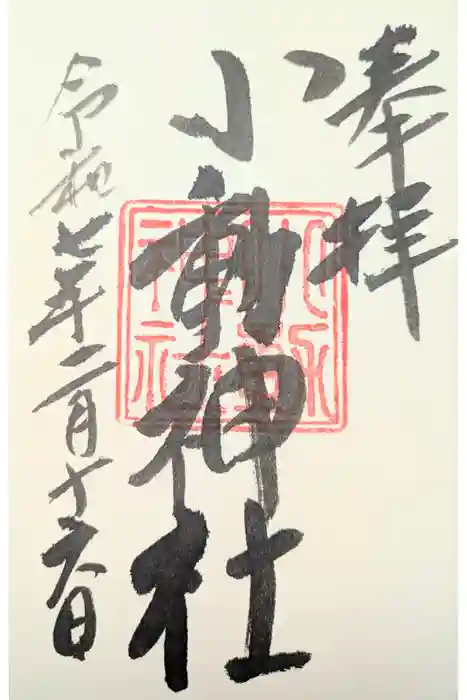 奉拝
小動神社
令和七年二月十六日